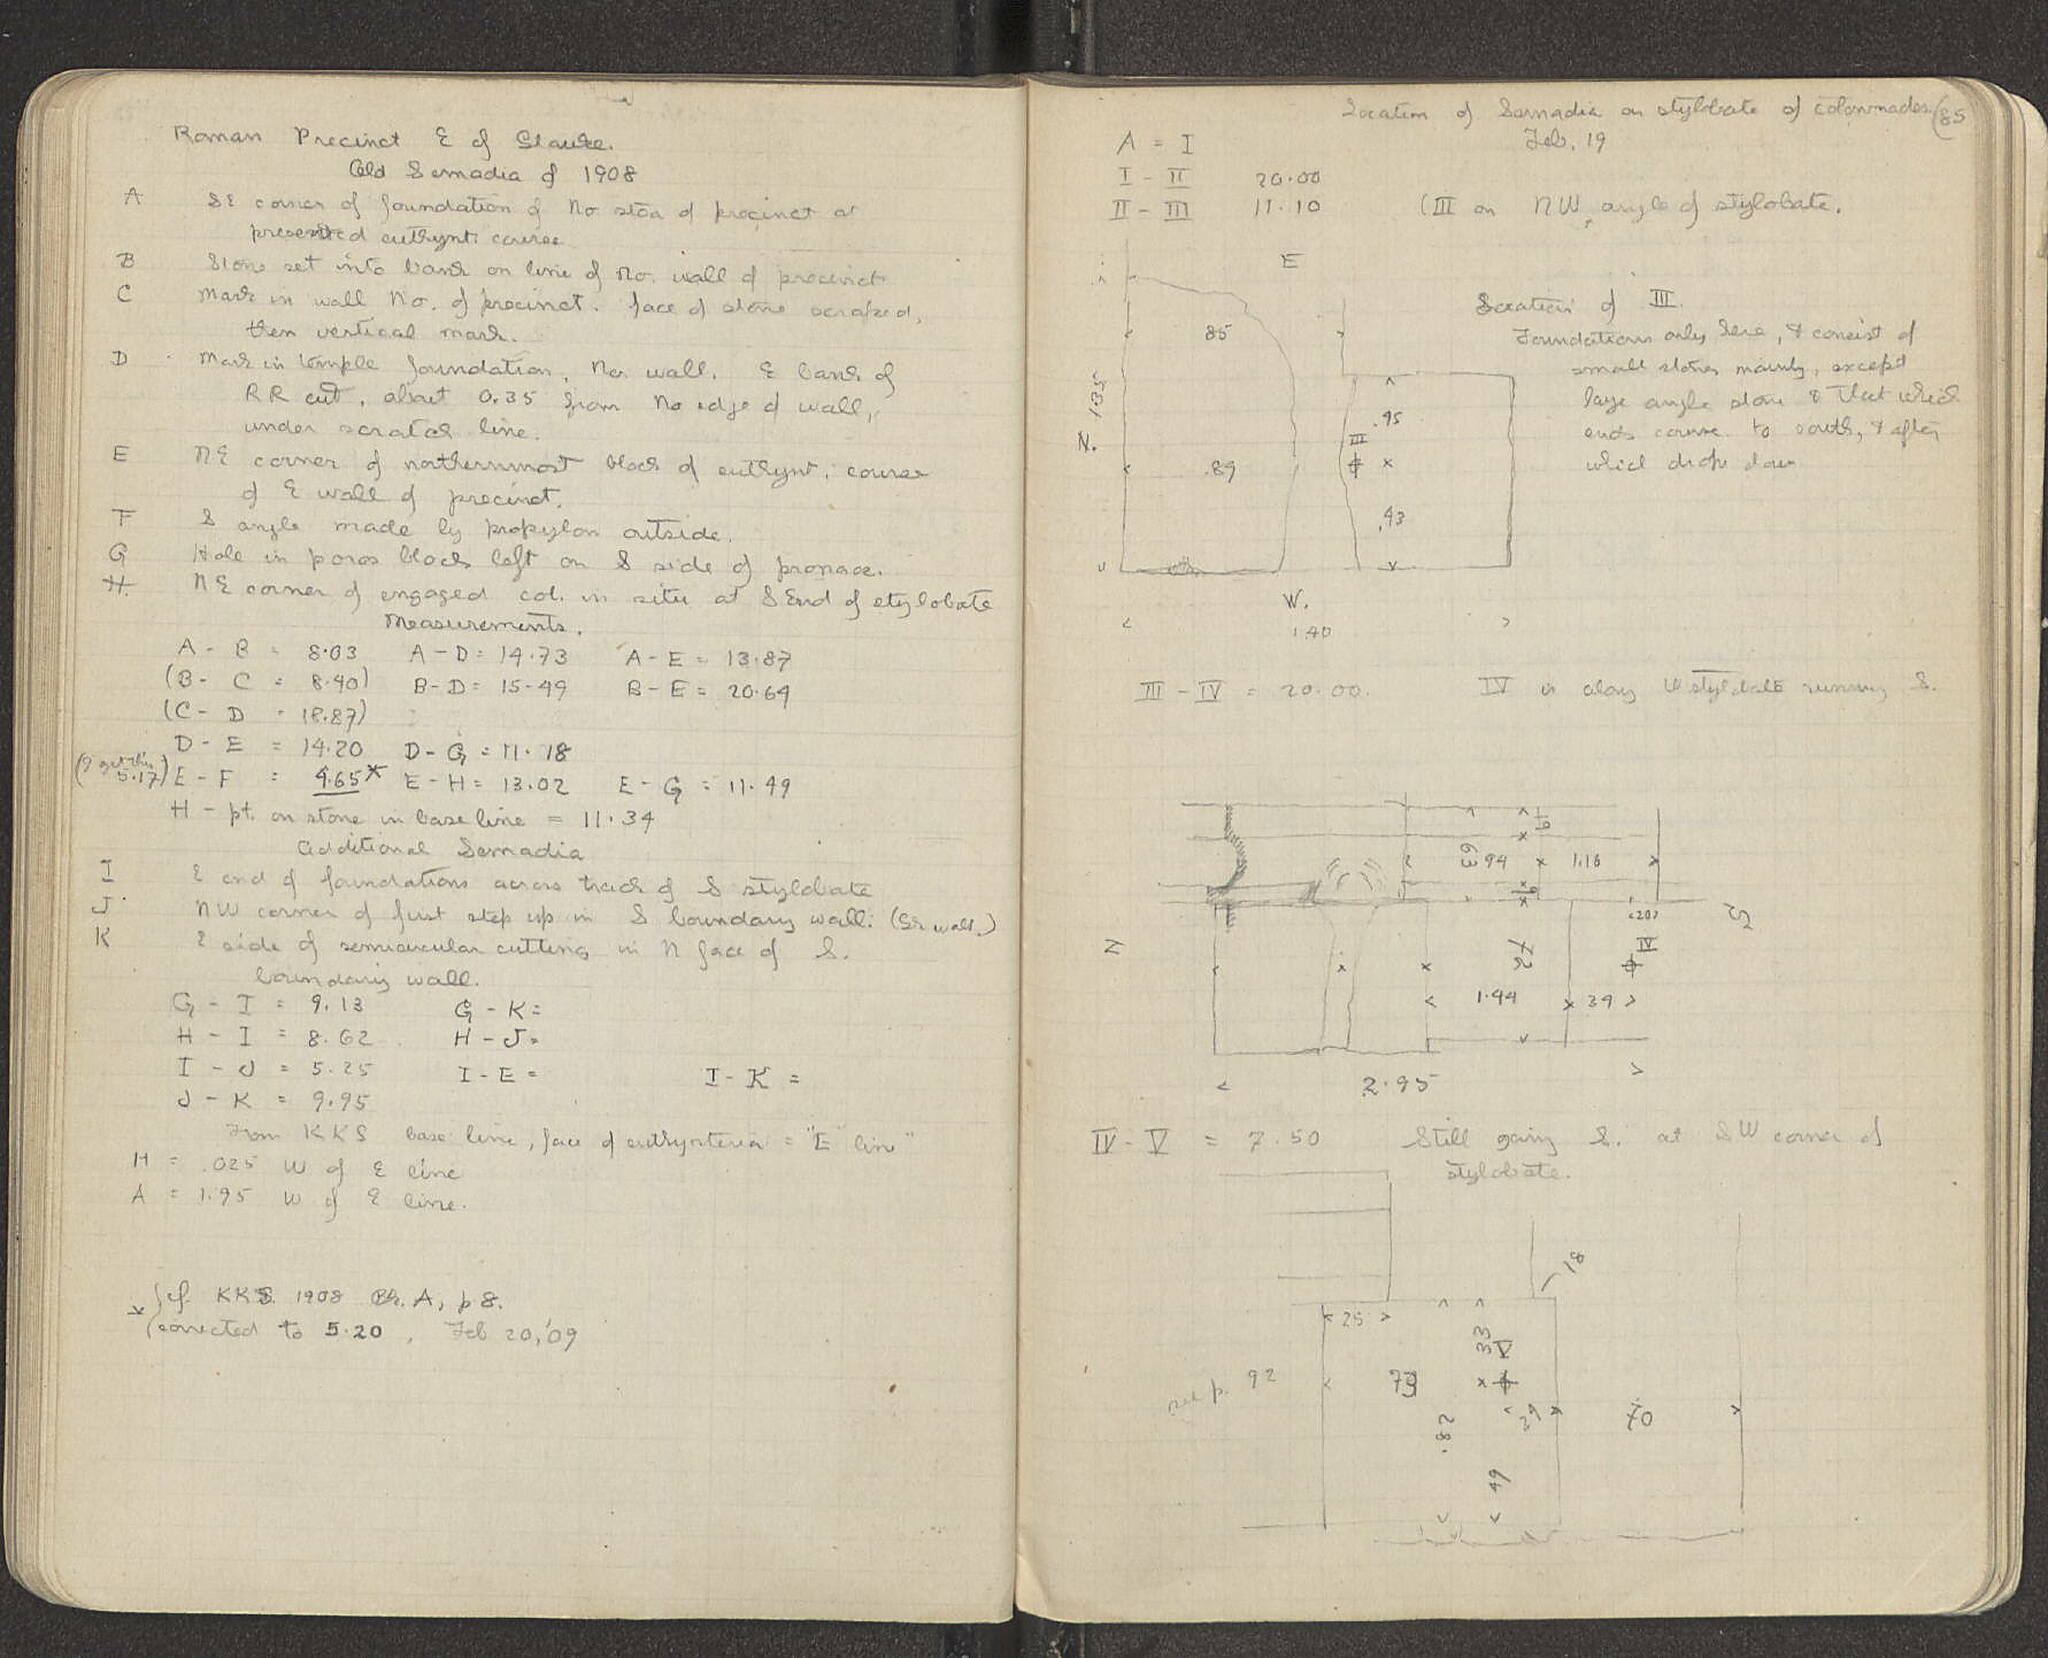 Roman Precinct E of Glauke.
Old Semadia of 1908
A SE corner of foundation of No. stoa of precinct at
preserved euthynt. course
B Stone set into bank on line of No. wall of precinct
C Mark in wall No. of precinct. face of stone scraped,
then vertical mark.
D Mark in temple foundation, No. wall. E bank of
RR cut, about 0.35 from No edge of wall,
under scratch line.
E NE corner of northernmost block of euthynt. course
of E wall of precinct.
F S angle made by propylon outside.
G Hole in poros block left on S side of pronaos.
H. NE corner of engaged col. in situ at S End of stylobate
Measurements.
A - B = 8.03 A - D = 14.73 A - E = 13.87
(B - C = 8.40) B - D = 15.49 B - E = 20.64
(C - D = 18.87)
D - E = 14.20 D - G = 11.18
(I get this 5.17) E - F = 4.65* E - H = 13.02 E - G = 11.49
H - pt. on stone in base line = 11.34
Additional Semadia
I E end of foundations across track of S stylobate
J NW corner of first step up in S boundary wall. (Gr wall.)
K E side of semicircular cutting in N face of S.
boundary wall.
G - I = 9.13 G - K =
H - I = 8.62 H - J =
I - J = 5.25 I - E = I - K =
J - K = 9.95
From KKS base line, face of euthynteria = "E line"
H = .025 W of E line
A = 1.95 W of E line.
* cf. KKS. 1908 Bk. A, p 8.
corrected to 5.20, Feb 20, '09
Location of Semadia on stylobate of colonnades. (85
Feb. 19
A = I
I - II 20.00
II - III 11.10 (III on NW angle of stylobate.
E
Location of III.
Foundations only here, & consist of
small stones mainly, except
large angle stone & that which
ends course to south, & after
which drops down
85
1.35
N.
.95
III
.89
.43
W.
1.40
III - IV = 20.00. IV is along W stylobate running S.
19
63 94 1.18
19
20
S
N
IV
72
1.44 39
2.95
IV - V = 7.50 Still going S. at SW corner of
stylobate.
18
25
33
V
see p. 92
73
29
70
.82
49